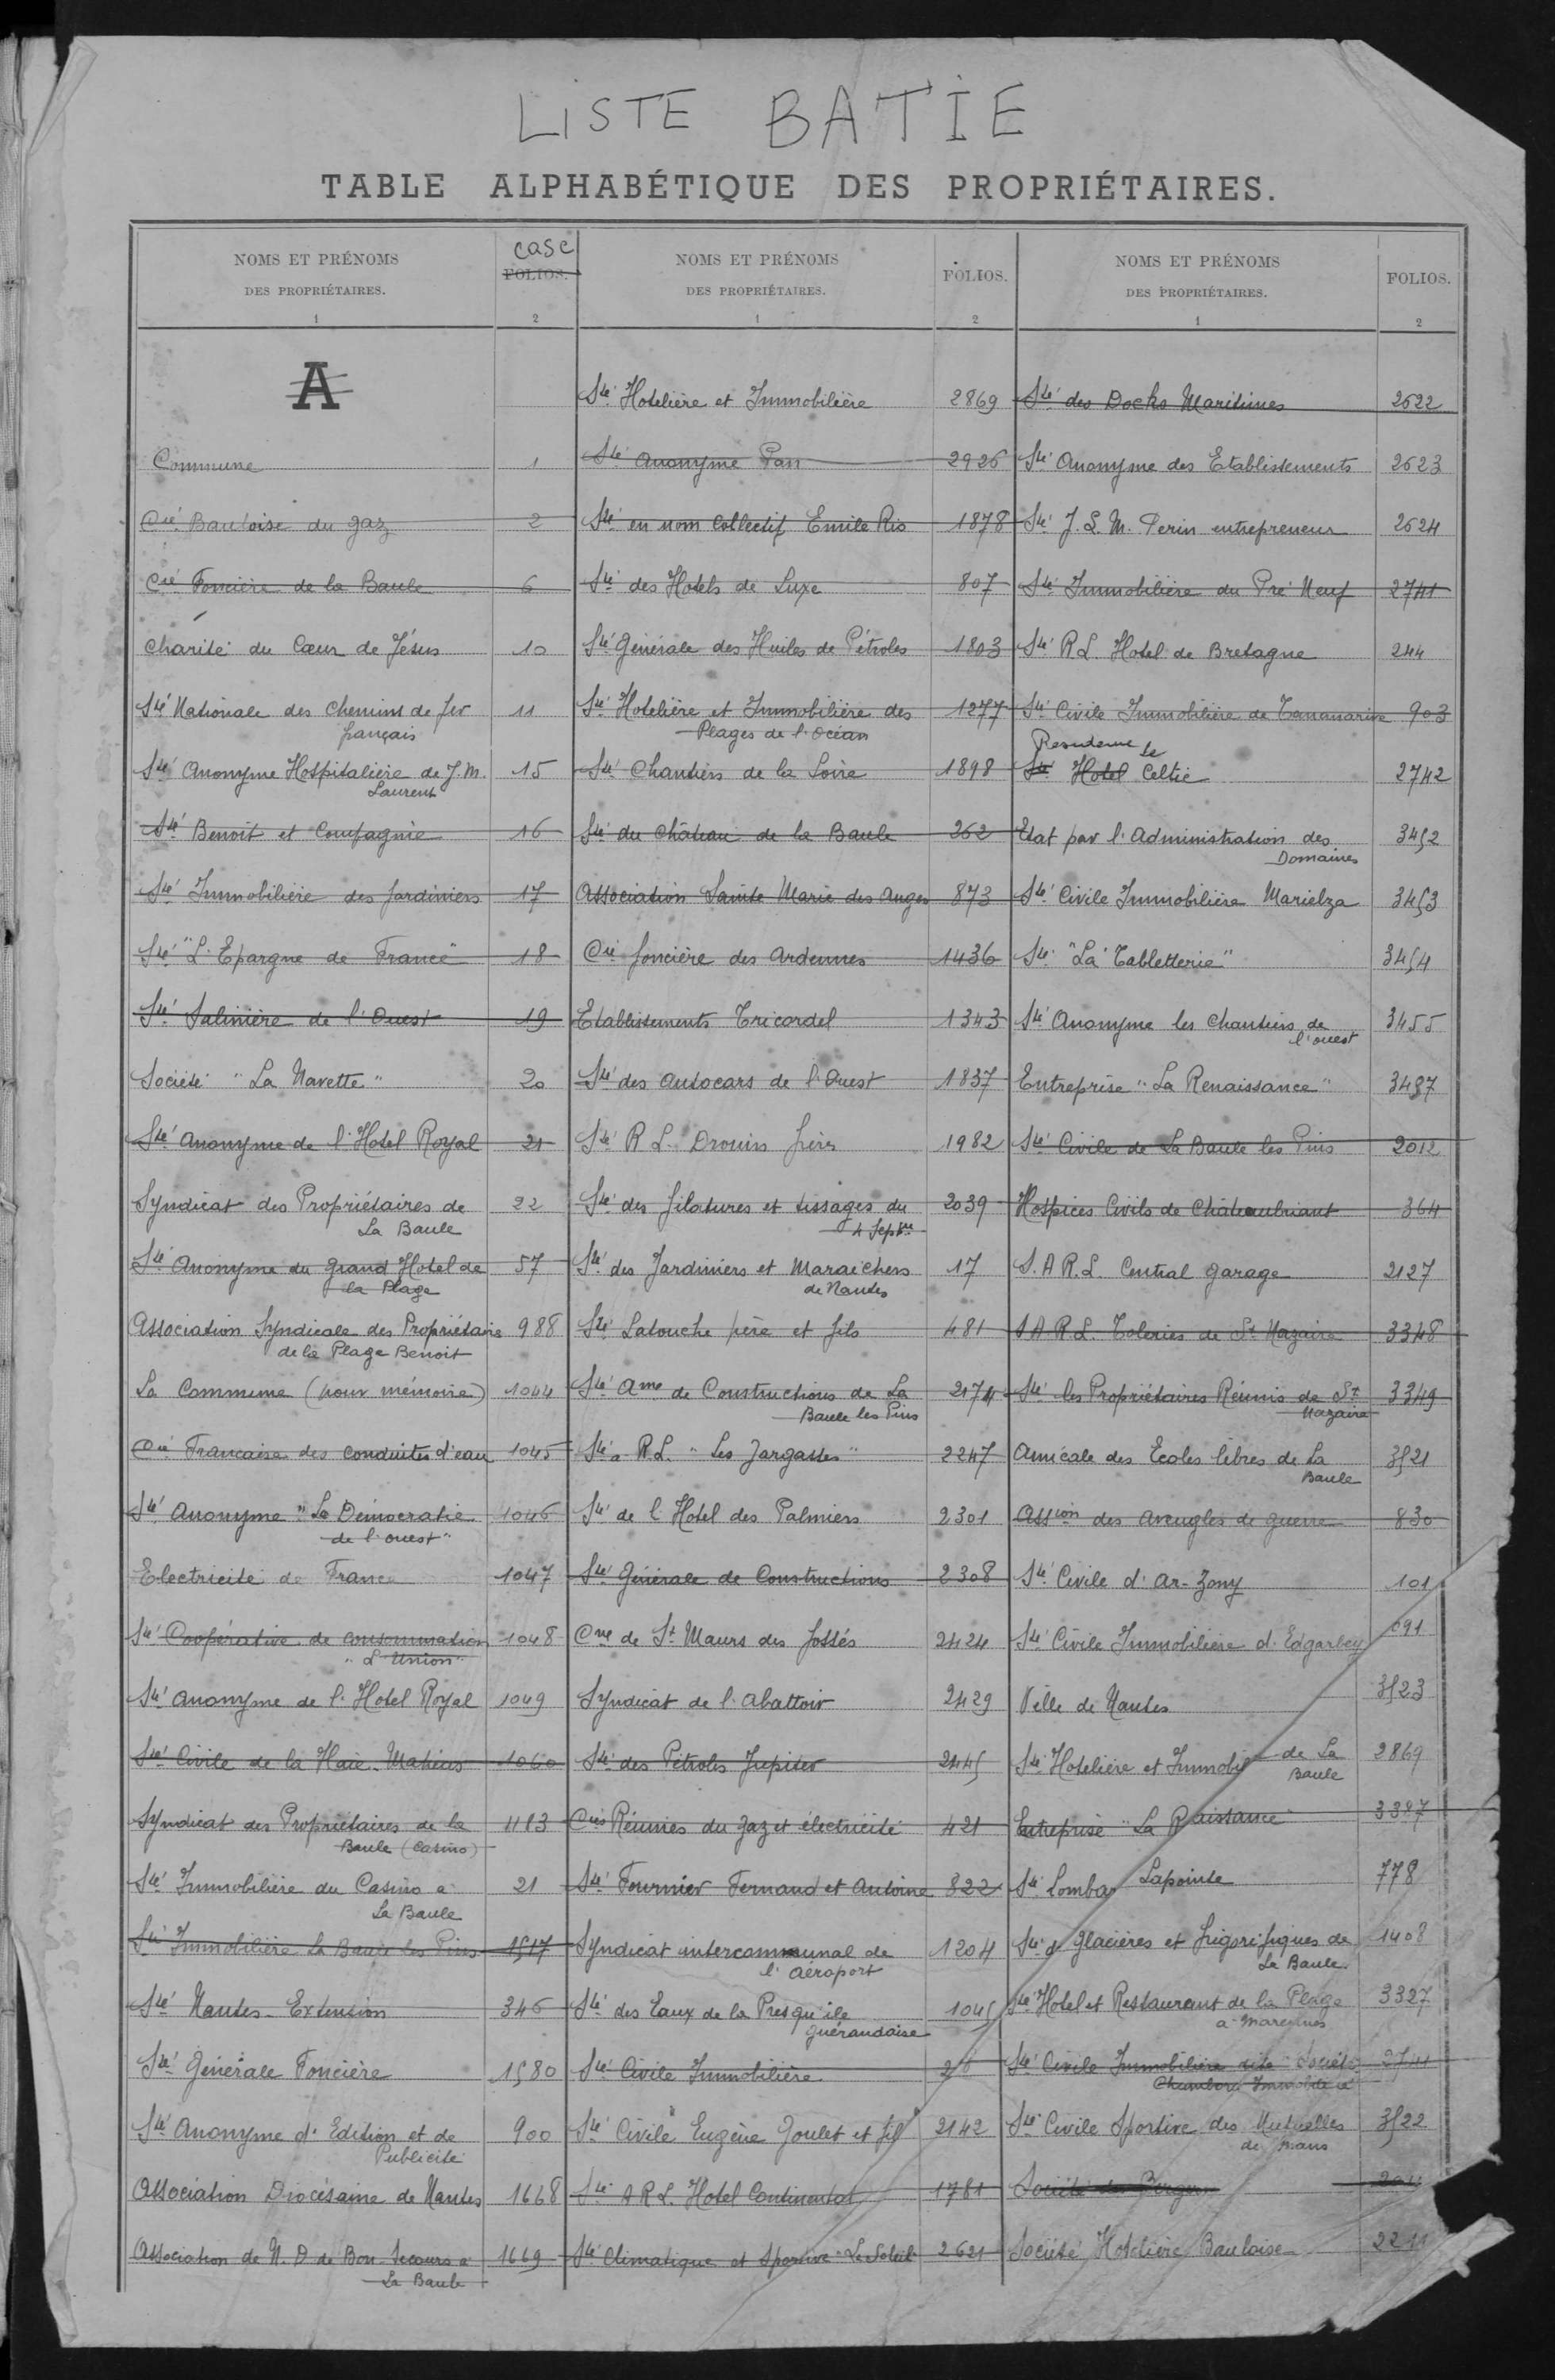 LISTE BATIE
TABLE ALPHABÉTIQUE DES PROPRIÉTAIRES.
NOMS ET PRÉNOMS
DES PROPRIÉTAIRES.
1
case
FOLIOS.
2
A
Commune 1
Cie Bauloise du gaz 2
Cie Foncière de la Baule 6
Charité du Cœur de Jésus 10
Sté Nationale des chemins de fer 11
français
Sté Anonyme Hospitalière de J.M. 15
Laurent
Sté Benoit et Compagnie 16
Sté Immobilière des Jardiniers 17
Sté "L'Epargne de France" 18
Sté Salinière de l'Ouest 19
Société "La Navette" 20
Sté Anonyme de l'Hotel Royal 21
Syndicat des Propriétaires de 22
La Baule
Sté Anonyme du Grand Hotel de 57
la Plage
Association Syndicale des Propriétaire 988
de la Plage Benoit
La Commune (pour mémoire) 1044
Cie Francaise des conduites d'eau 1045
Sté Anonyme "La Démocratie 1046
de l'ouest"
Electricité de France 1047
Sté Coopérative de consommation 1048
"L'Union"
Sté Anonyme de l'Hotel Royal 1049
Sté Civile de la Haie Mahéas 1060
Syndicat des Propriétaires de la 1183
Baule (Casino)
Sté Immobilière du Casino a 21
La Baule
Sté Immobilière La Baule les Pins 1517
Sté Nantes-Extension 346
Sté Générale Foncière 1580
Sté Anonyme d'Edition et de 900
Publicité
Association Diocésaine de Nantes 1668
Association de N. D de Bon Secours a 1669
La Baule
NOMS ET PRÉNOMS
DES PROPRIÉTAIRES.
1
FOLIOS.
2
Sté Hotelière et Immobilière 2869
Sté Anonyme Pan 2926
Sté en nom Collectif Emile Rio 1878
Sté des Hotels de Luxe 807
Sté Générale des Huiles de Pétroles 1803
Sté Hotelière et Immobilière des 1277
Plages de l'Océan
Sté Chantiers de la Loire 1898
Sté du Château de la Baule 262
Association Sainte Marie des Anges 873
Cie foncière des Ardennes 1436
Etablissements Tricardel 1343
Sté des Autocars de l'Ouest 1837
Sté R L. Drouin frères 1982
Sté des filatures et tissages du 2039
4 Septbre
Sté des Jardiniers et Maraichers 17
de Nantes
Sté Latouche père et fils 481
Sté Ame de Constructions de La 2174
Baule les Pins
Sté a R.L. "Les Jargasses" 2247
Sté de l'Hotel des Palmiers 2301
Sté Générale de Constructions 2308
Cne de St Maurs des fossés 2424
Syndicat de l'Abattoir 2429
Sté des Pétroles Jupiter 2445
Cies Réunies du gaz et électricité 421
Sté Fournier Fernand et Antoine 822
Syndicat intercommunal de 1204
l'Aéroport
Sté des Eaux de la Presqu'ile 1045
guérandaise
Sté Civile Immobilière
Sté Civile "Eugène Goulet et fil" 2142
Sté A R L. Hotel Continental 1781
Sté Climatique et Sportive "Le Soleil" 2621
NOMS ET PRÉNOMS
DES PROPRIÉTAIRES.
1
FOLIOS.
2
Sté des Docks Maritimes 2622
Sté Anonyme des Etablissements 2623
Sté J. L. M. Perin entrepreneur 2624
Sté Immobilière du Pré Neuf 2741
Sté R L. Hotel de Bretagne 244
Sté Civile Immobilière de Tananarive 903
Residence le
Sté Hotel Celtic 2742
Etat par l'Administration des 3452
Domaines
Sté Civile Immobilière Marielza 3453
Sté "La Tabletterie" 3454
Sté Anonyme les Chantiers de 3455
l'ouest
Entreprise "La Renaissance" 3487
Sté Civile de La Baule les Pins 2012
Hospices Civils de Châteaubriant 364
S.A R.L. Central Garage 2127
S A R.L. Toleries de St Nazaire 3348
Sté les Propriétaires Réunis de St 3349
Nazaire
Amicale des Ecoles libres de La 3521
Baule
Assion des Aveugles de guerre 830
Sté Civile d'Ar-Zony 101
Sté Civile Immobilière d'Edgarbey 691
Ville de Nantes 3523
Sté Hotelière et Immobil de La 2869
Baule
Entreprise "La R aissance" 3387
Sté Lomba Lapointe 778
Sté d Glacières et frigorifiques de 1408
La Baule
Sté Hotel et Restaurant de la Plage 3327
a Marennes
Sté Civile Immobilière dite Société 2741
Chambord Immobilière
Sté Civile Sportive des Mutuelles 3522
du mans
Société
Société Hotelière Bauloise